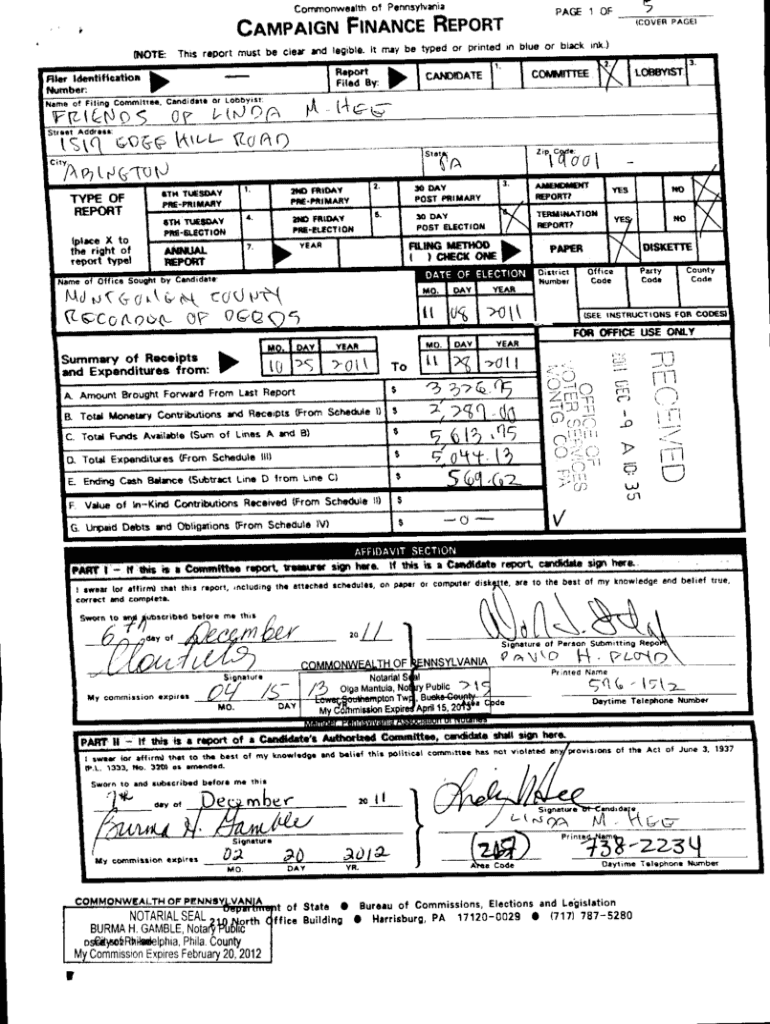 Commonwealth of Pennsylvania
PAGE 1 OF 5
CAMPAIGN FINANCE REPORT
(COVER PAGE)
(NOTE: This report must be clear and legible. It may be typed or printed in blue or black ink.)
Filer Identification Number: —
Report Filed By:
CANDIDATE 1.
COMMITTEE 2. X
LOBBYIST 3.
Name of Filing Committee, Candidate or Lobbyist:
FRIENDS OF LINDA M. HEE
Street Address:
1517 EDGE HILL ROAD
City
ABINGTON
State
PA
Zip Code:
19001 -
TYPE OF REPORT
(place X to the right of report type)
6TH TUESDAY PRE-PRIMARY 1.
2ND FRIDAY PRE-PRIMARY 2.
30 DAY POST PRIMARY 3.
AMENDMENT REPORT? YES NO X
6TH TUESDAY PRE-ELECTION 4.
2ND FRIDAY PRE-ELECTION 5.
30 DAY POST ELECTION 6. X
TERMINATION REPORT? YES NO X
ANNUAL REPORT 7.
YEAR
FILING METHOD ( ) CHECK ONE
PAPER X
DISKETTE
Name of Office Sought by Candidate:
MONTGOMERY COUNTY
RECORDOR OF DEEDS
DATE OF ELECTION
MO. DAY YEAR
11 08 2011
District Number
Office Code
Party Code
County Code
(SEE INSTRUCTIONS FOR CODES)
Summary of Receipts and Expenditures from:
MO. DAY YEAR
10 25 2011
To
MO. DAY YEAR
11 28 2011
FOR OFFICE USE ONLY
A. Amount Brought Forward From Last Report $ 3,326.75
B. Total Monetary Contributions and Receipts (From Schedule I) $ 2,287.00
C. Total Funds Available (Sum of Lines A and B) $ 5,613.75
D. Total Expenditures (From Schedule III) $ 5,044.13
E. Ending Cash Balance (Subtract Line D from Line C) $ 569.62
F. Value of In-Kind Contributions Received (From Schedule II) $
G. Unpaid Debts and Obligations (From Schedule IV) $ —0—
RECEIVED
2011 DEC -9 A 10: 35
OFFICE OF
VOTER SERVICES
MONTG CO PA
AFFIDAVIT SECTION
PART I - If this is a Committee report, treasurer sign here. If this is a Candidate report, candidate sign here.
I swear (or affirm) that this report, including the attached schedules, on paper or computer diskette, are to the best of my knowledge and belief true, correct and complete.
Sworn to and subscribed before me this
6th day of December 2011
Signature
Signature of Person Submitting Report
DAVID H. FLOYD
Printed Name
COMMONWEALTH OF PENNSYLVANIA
Notarial Seal
Olga Mantula, Notary Public
Lower Southampton Twp., Bucks County
My Commission Expires April 15, 2013
Member, Pennsylvania Association of Notaries
My commission expires 04 15 13
MO. DAY
215 576-1512
Area Code
Daytime Telephone Number
PART II - If this is a report of a Candidate's Authorized Committee, candidate shall sign here.
I swear (or affirm) that to the best of my knowledge and belief this political committee has not violated any provisions of the Act of June 3, 1937 (P.L. 1333, No. 320) as amended.
Sworn to and subscribed before me this
7th day of December 2011
Burma H. Gamble
Signature
Linda M Hee
Signature of Candidate
LINDA M. HEE
Printed Name
My commission expires 02 20 2012
MO. DAY YR.
(217) 738-2234
Area Code
Daytime Telephone Number
COMMONWEALTH OF PENNSYLVANIA
NOTARIAL SEAL
BURMA H. GAMBLE, Notary Public
City of Philadelphia, Phila. County
My Commission Expires February 20, 2012
Department of State ● Bureau of Commissions, Elections and Legislation
210 North Office Building ● Harrisburg, PA 17120-0029 ● (717) 787-5280